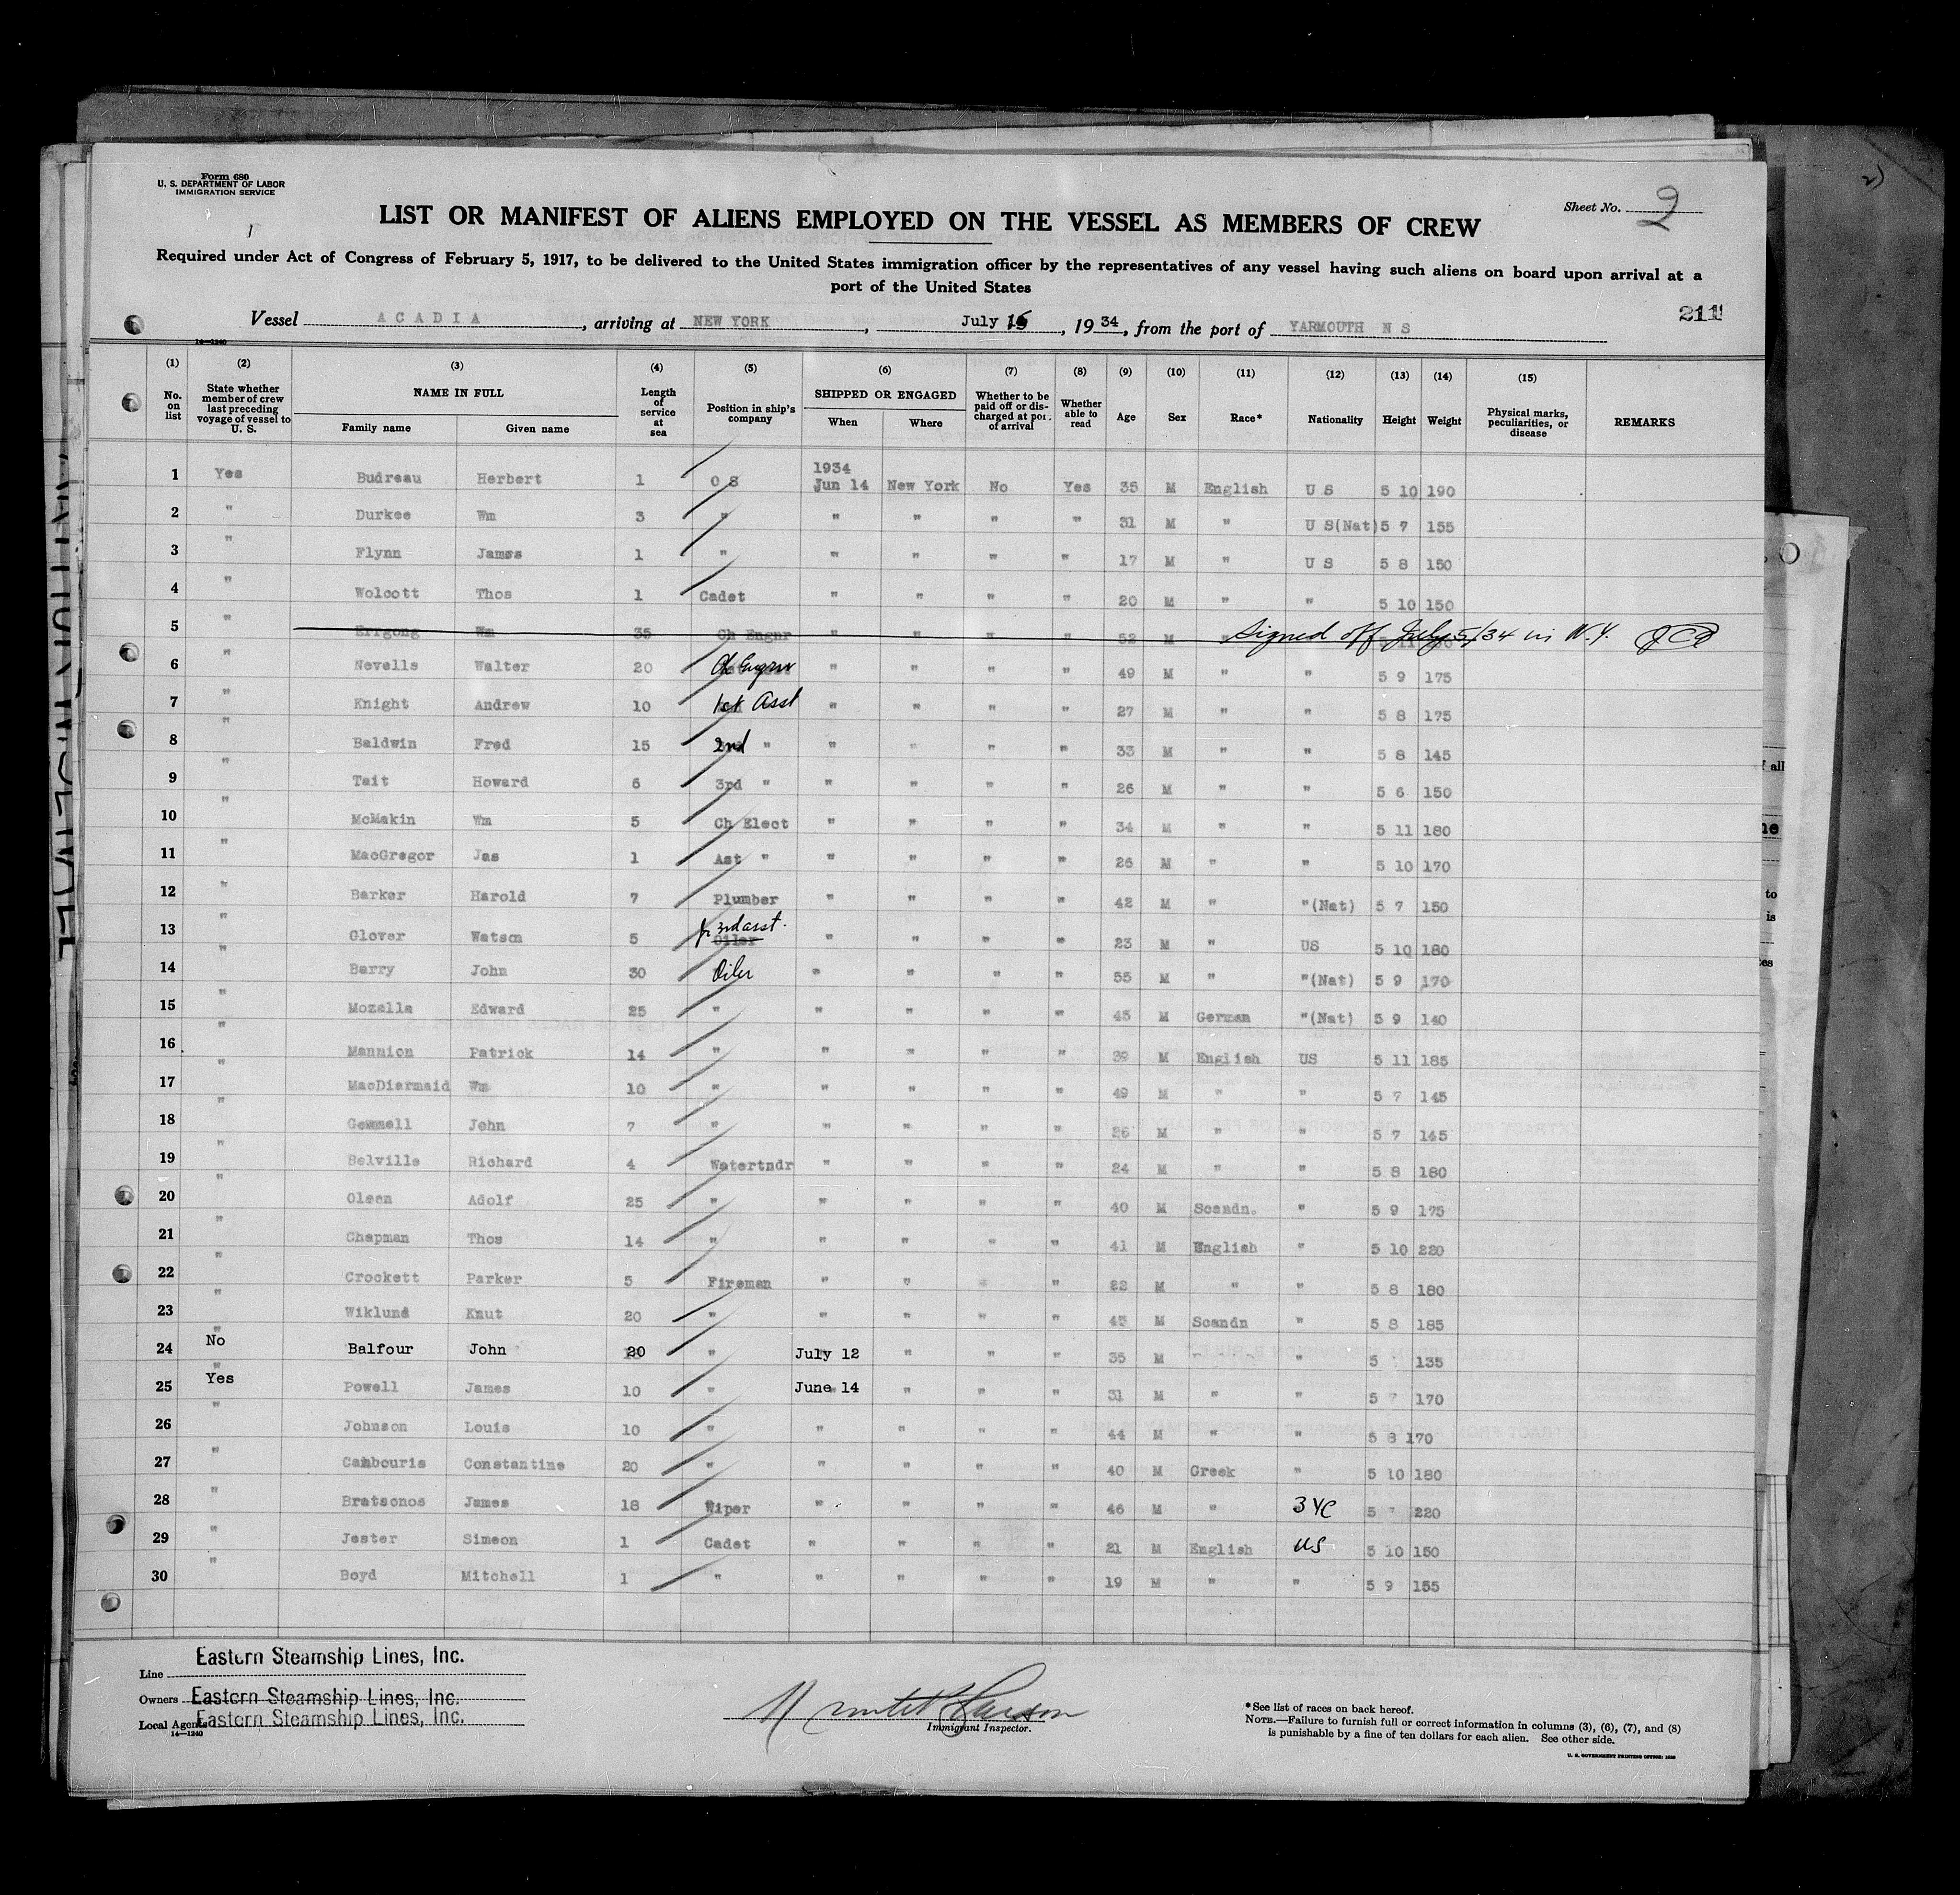 Form 680
U. S. DEPARTMENT OF LABOR
IMMIGRATION SERVICE
Sheet No. 2
LIST OR MANIFEST OF ALIENS EMPLOYED ON THE VESSEL AS MEMBERS OF CREW
Required under Act of Congress of February 5, 1917, to be delivered to the United States immigration officer by the representatives of any vessel having such aliens on board upon arrival at a
port of the United States
211
Vessel ACADIA, arriving at NEW YORK, July 16, 1934, from the port of YARMOUTH N S
14—1240
(1) No. on list (2) State whether member of crew last preceding voyage of vessel to U. S. (3) NAME IN FULL Family name Given name (4) Length of service at sea (5) Position in ship's company (6) SHIPPED OR ENGAGED When Where (7) Whether to be paid off or discharged at port of arrival (8) Whether able to read (9) Age (10) Sex (11) Race* (12) Nationality (13) Height (14) Weight (15) Physical marks, peculiarities, or disease REMARKS
1 Yes Budreau Herbert 1 O S 1934 Jun 14 New York No Yes 35 M English U S 5 10 190
2 " Durkee Wm 3 " " " " " 31 M " U S(Nat) 5 7 155
3 " Flynn James 1 " " " " " 17 M " U S 5 8 150
4 " Wolcott Thos 1 Cadet " " " " 20 M " " 5 10 150
5 " Errgong Wm 35 Ch Engnr " " " " 52 M " Signed off July 5/34 in N.Y.
6 " Nevells Walter 20 Ch Engnr " " " " 49 M " " 5 9 175
7 " Knight Andrew 10 1st Asst " " " " 27 M " " 5 8 175
8 " Baldwin Fred 15 2nd " " " " " 33 M " " 5 8 145
9 " Tait Howard 6 3rd " " " " " 26 M " " 5 6 150
10 " McMakin Wm 5 Ch Elect " " " " 34 M " " 5 11 180
11 " MacGregor Jas 1 Ast " " " " " 26 M " " 5 10 170
12 " Barker Harold 7 Plumber " " " " 42 M " "(Nat) 5 7 150
13 " Glover Watson 5 Jr 3rd asst. Oiler " " " " 23 M " US 5 10 180
14 " Barry John 30 Oiler " " " " 55 M " "(Nat) 5 9 170
15 " Mozalla Edward 25 " " " " " 45 M German "(Nat) 5 9 140
16 " Mannion Patrick 14 " " " " " 39 M English US 5 11 185
17 " MacDiarmaid Wm 10 " " " " " 49 M " " 5 7 145
18 " Gemmell John 7 " " " " " 26 M " " 5 7 145
19 " Belville Richard 4 Watertndr " " " " 24 M " " 5 8 180
20 " Olsen Adolf 25 " " " " " 40 M Scandn. " 5 9 175
21 " Chapman Thos 14 " " " " " 41 M English " 5 10 220
22 " Crockett Parker 5 Fireman " " " " 22 M " " 5 8 180
23 " Wiklund Knut 20 " " " " " 45 M Scandn " 5 8 185
24 No Balfour John 20 " July 12 " " " 35 M " 5 135
25 Yes Powell James 10 " June 14 " " " 31 M " " 5 7 170
26 " Johnson Louis 10 " " " " " 44 M " " 5 8 170
27 " Cambouris Constantine 20 " " " " " 40 M Greek " 5 10 180
28 " Bratsonos James 18 Wiper " " " " 46 M " 3 YC 5 7 220
29 " Jester Simeon 1 Cadet " " " " 21 M English US 5 10 150
30 " Boyd Mitchell 1 " " " " " 19 M " " 5 9 155
Line Eastern Steamship Lines, Inc.
Owners Eastern Steamship Lines, Inc.
Local Agents Eastern Steamship Lines, Inc.
14—1240
Immigrant Inspector.
*See list of races on back hereof.
NOTE.—Failure to furnish full or correct information in columns (3), (6), (7), and (8)
is punishable by a fine of ten dollars for each alien. See other side.